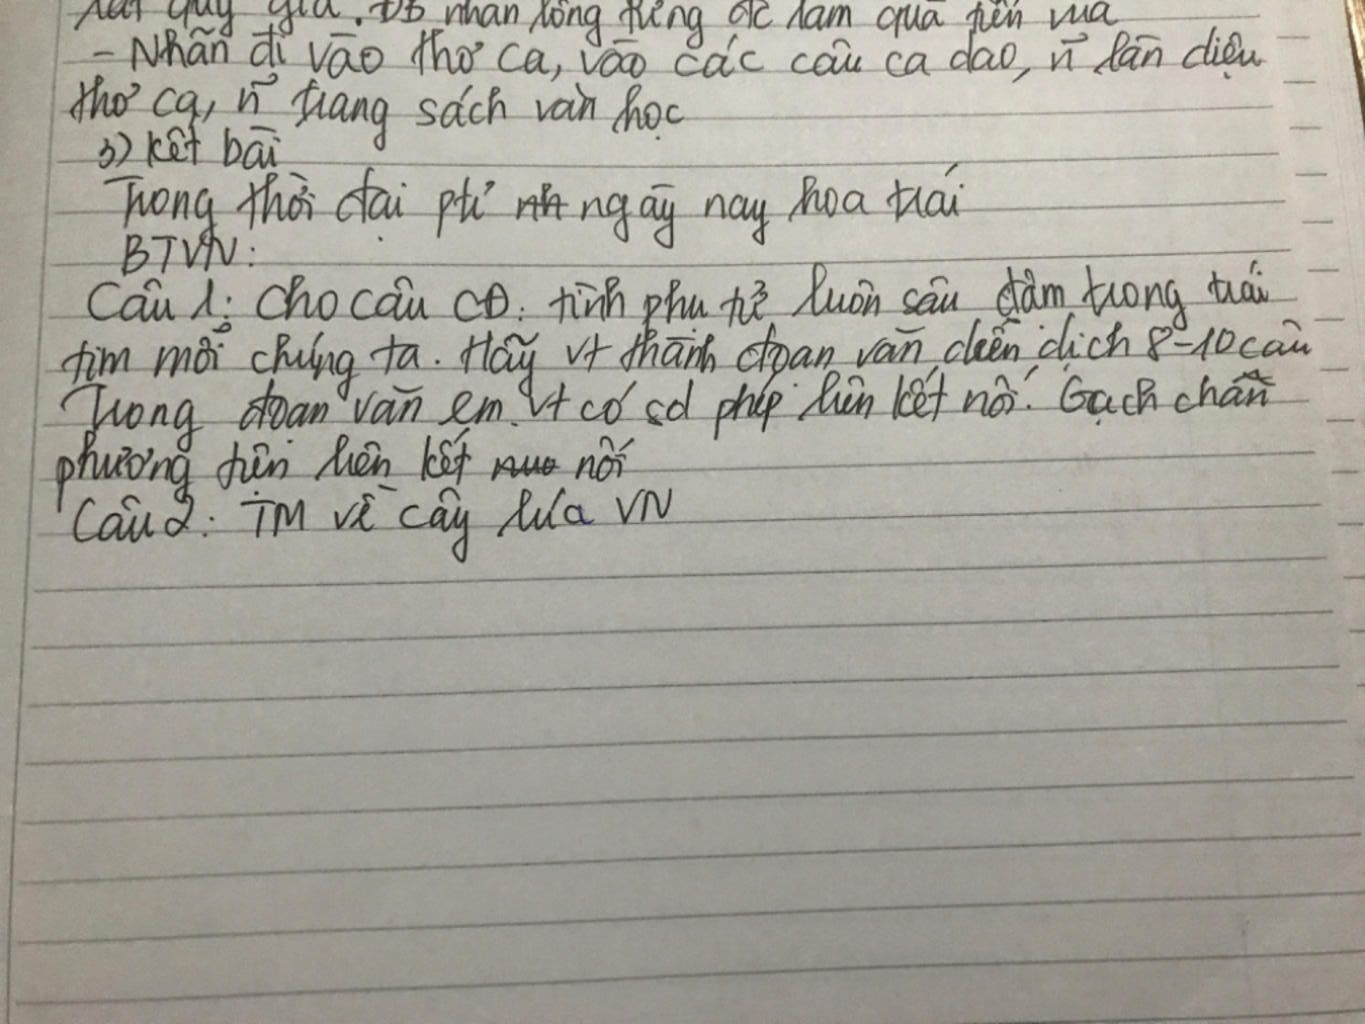 quý giá. ĐB nhãn lồng từng đc làm quà tiến vua
- Nhãn đi vào thơ ca, vào các câu ca dao, n~ lần điệu
thơ ca, n~ trang sách văn học
3) Kết bài
Trong thời đại ptr ngày nay hoa trái
BTVN:
Câu 1: Cho câu CĐ: tình phụ tử luôn sâu đậm trong trái
tim mỗi chúng ta. Hãy vt thành đoạn văn diễn dịch 8-10 câu
Trong đoạn văn em vt có sd phép liên kết nối. Gạch chân
phương tiện liên kết nối
Câu 2: TM về cây lúa VN